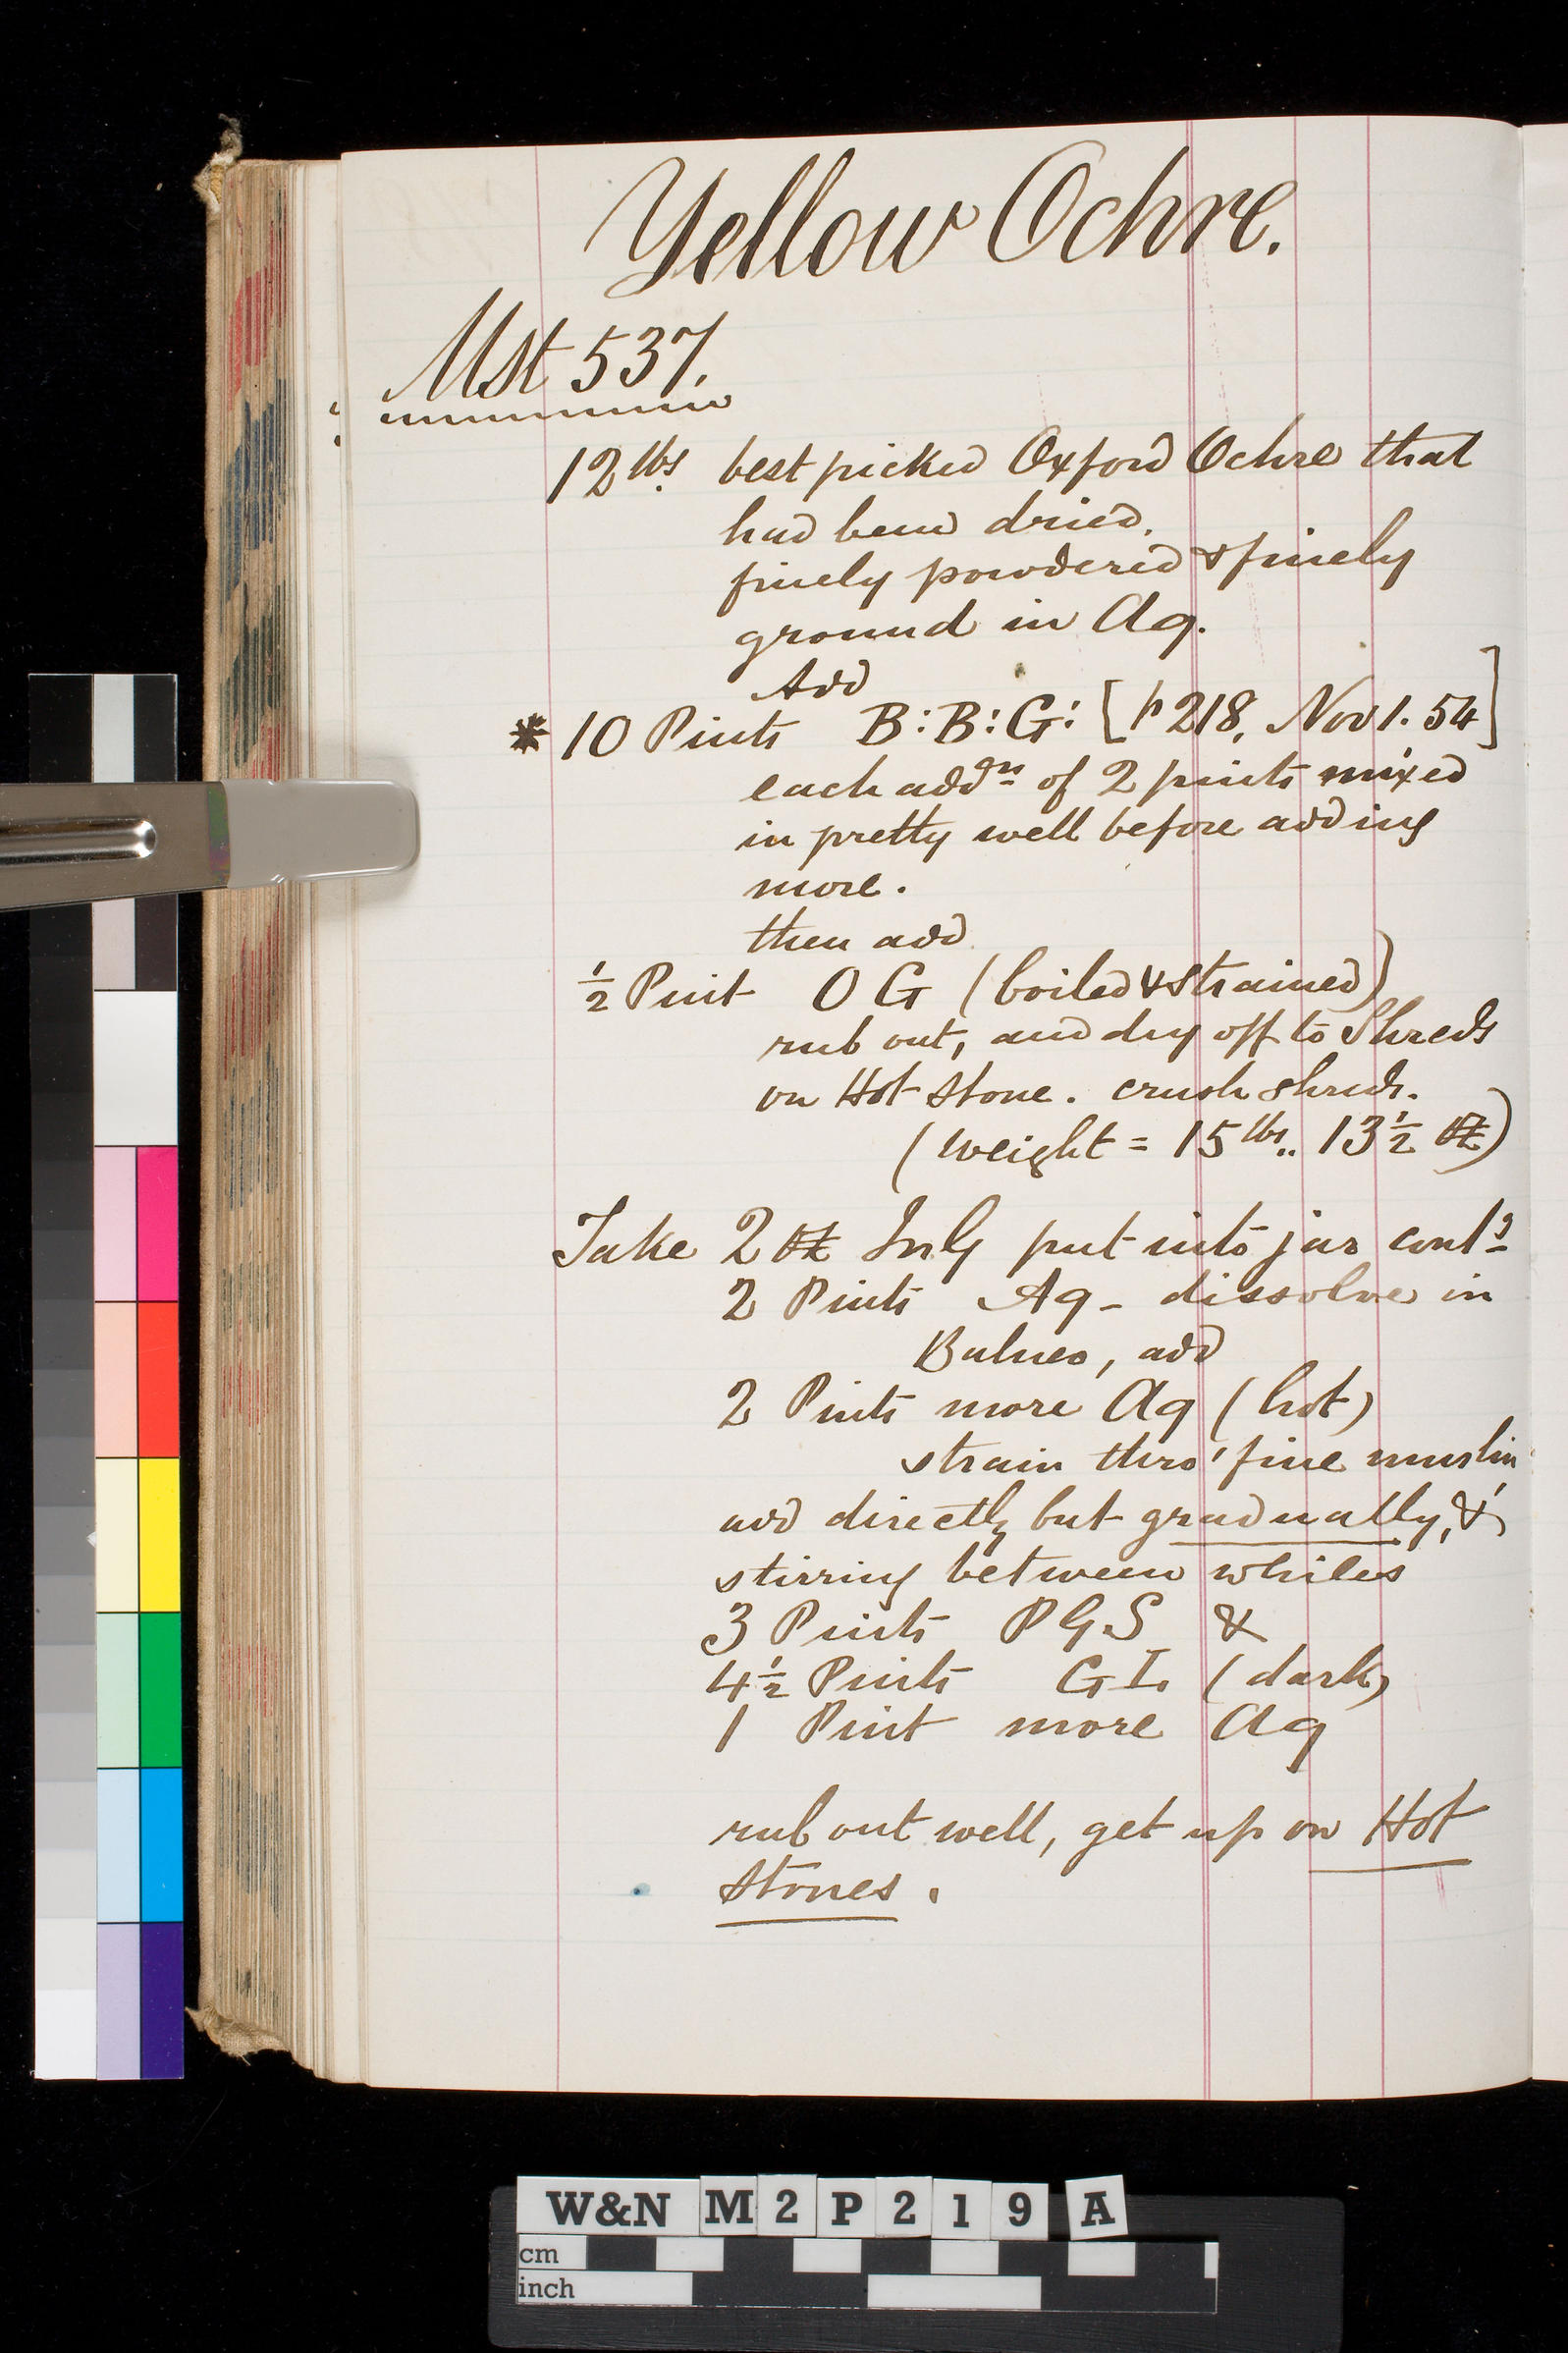 Yellow Ochre.
Mst 537.
12 lbs best picked Oxford Ochre that
had been dried.
finely powdered & finely
ground in Aq.
Add
* 10 Pints B:B:G: [p 218, Nov 1. 54]
each addgn of 2 pints mixed
in pretty well before adding
more.
then add
½ Pint O G (boiled & strained)
rub out, and dry off to Shreds
on Hot Stone. crush shreds.
(weight = 15 lbs.. 13½ oz)
Take 2 oz InG put into jar contg
2 Pints Aq - dissolve in
Balneo, add
2 Pints more Aq (hot)
strain thro' fine muslin
add directly but gradually, &
stirring between whiles
3 Pints P G S &
4½ Pints G I. (dark)
1 Pint more Aq
rub out well, get up on Hot
Stones.
W&N M2P219A
cm
inch